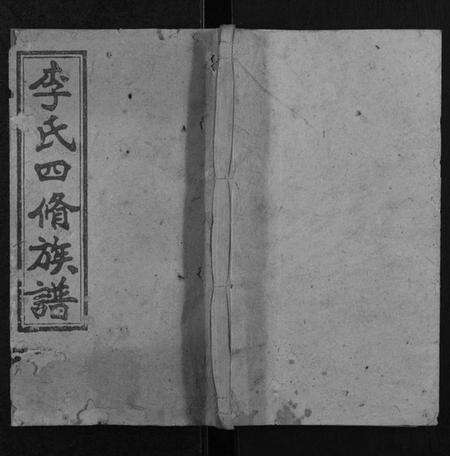 李氏四脩族譜